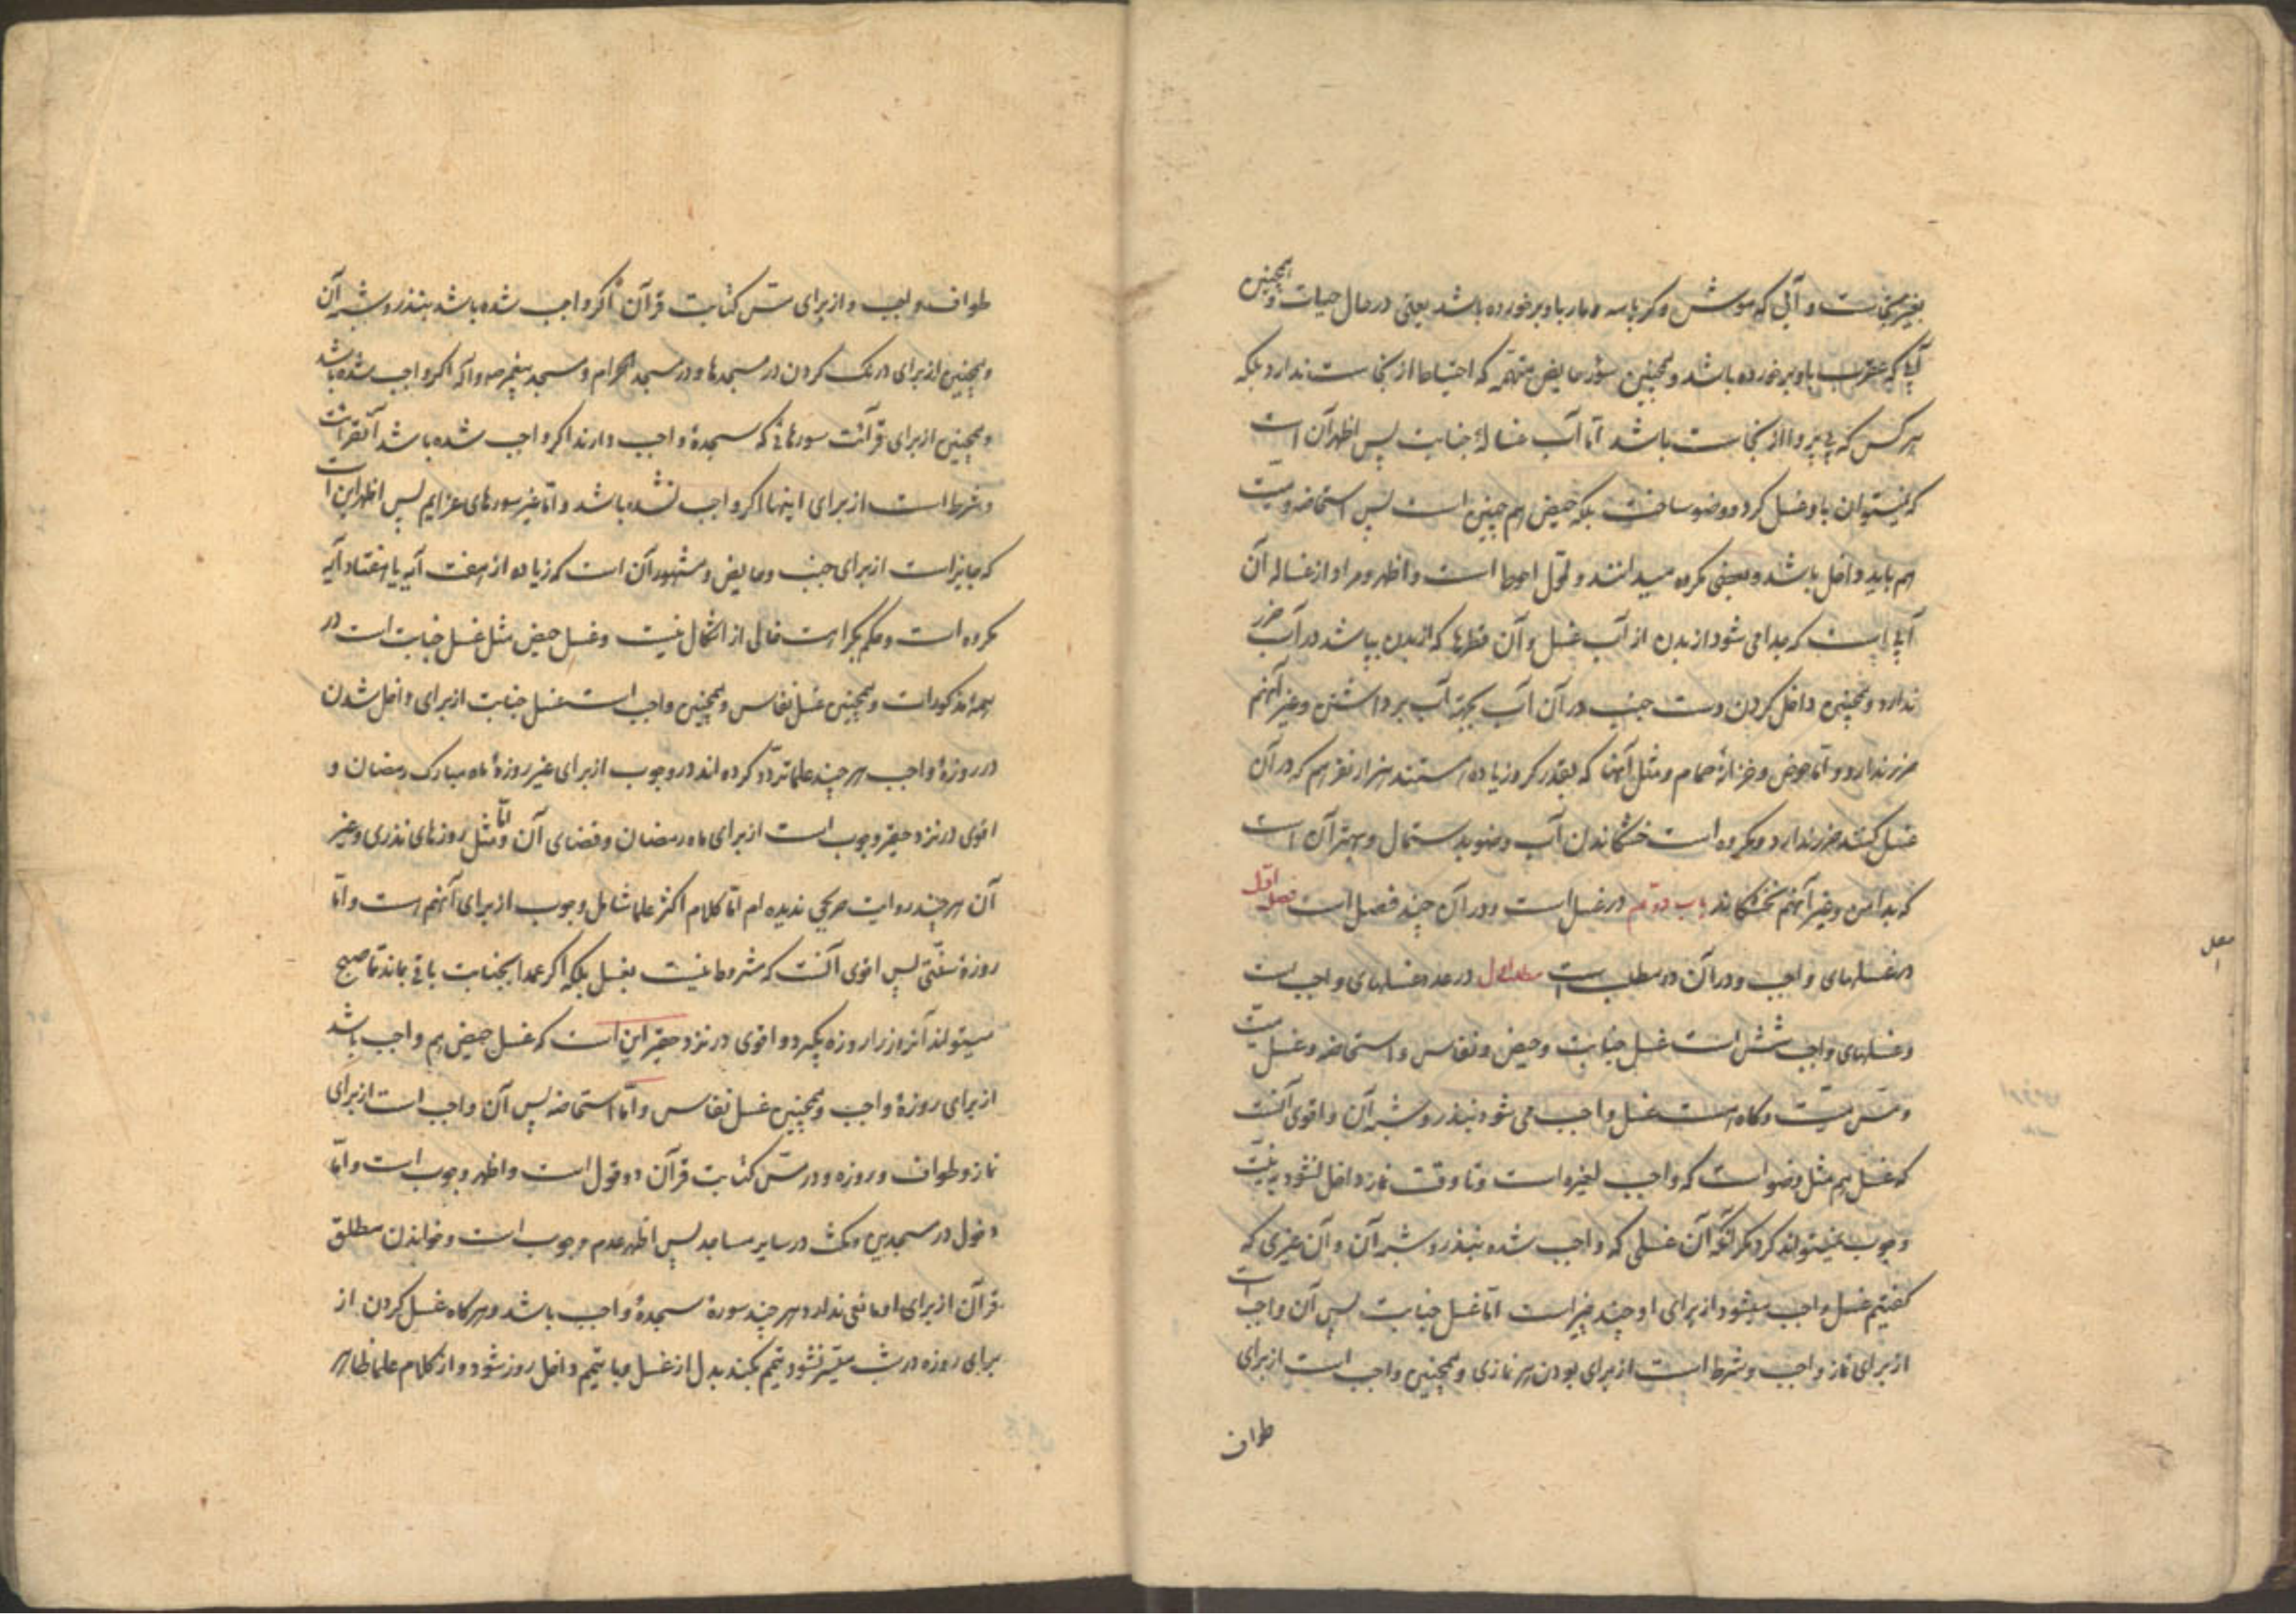 بغیر نجاست و آبی که موش و کرباسه و مار باو برخورده باشد یعنی در حال حیات و همچنین
آبی که عقرب باو برخورده باشد و همچنین سؤر حایض متهمه که احتیاط از نجاست ندارد بلکه
هر کس که بی پروا از نجاست باشد امّا آب غسالهٔ جنابت پس اظهر آن است
که نمیتوان باو غسل کرد و وضو ساخت بلکه حیض هم چنین است پس استحاضه و میّت
هم باید داخل باشد و بعضی مکروه میدانند و قول احوط است و اظهر و مراد از غساله آن
آبی است که جدا می شود از بدن از آب غسل و آن قطرها که از بدن بپاشد در آب ضرر
ندارد و همچنین داخل کردن دست جنب در آن آب بجهة آب برداشتن و غیر آنهم
ضرر ندارد و امّا حوض و خزانهٔ حمام و مثل آنها که بقدر کر و زیاده هستند هزار نفر هم که در آن
غسل کنند ضرر ندارد و مکروه است خشکاندن آب وضو بدستمال و بهتر آن است
که بدامن و غیر آنهم نخشکاند باب دوّیم در غسل است و در آن چند فصل است فصل اوّل
در غسلهای واجب و در آن دو مطلب است مطلب اول در عدد غسلهای واجب است
و غسلهای واجب شش است غسل جنابت و حیض و نفاس و استحاضه و غسل میّت
و مسّ میّت و گاه هست غسل واجب می شود بنذر و شبه آن و اقوی آنست
که غسل هم مثل وضو است که واجب لغیره است و تا وقت نماز داخل نشود به نیّت
وجوب نمیتواند کرد مگر آنکه آن غسلی که واجب شده بنذر و شبه آن و آن غیری که
گفتیم غسل واجب میشود از برای او چند چیز است امّا غسل جنابت پس آن واجب است
از برای نماز واجب و شرط است از برای بودن هر نمازی و همچنین واجب است از برای
طواف
طواف واجب و از برای مسّ کتابت قرآن اگر واجب شده باشد بنذر و شبه آن
و همچنین از برای درنک کردن در مسجدها و در مسجد الحرام و مسجد پیغمبر ص و آله اگر واجب شده باشد
و همچنین از برای قرائت سورهائی که سجدهٔ واجب دارند اگر واجب شده باشد آنقرائت
و شرط است از برای اینها اگر واجب نشده باشد و امّا غیر سورهای عزایم پس اظهر این است
که جایز است از برای جنب و حایض و مشهور آن است که زیاده از هفت آیه یا هفتاد آیه
مکروه است و حکم بکراهت خالی از اشکال نیست و غسل حیض مثل غسل جنابت است در
همهٔ مذکورات و همچنین غسل نفاس و همچنین واجب است غسل جنابت از برای داخل شدن
در روزهٔ واجب هر چند علما تردّد کرده اند در وجوب از برای غیر روزهٔ ماه مبارک رمضان و
اقوی در نزد حقیر وجوب است از برای ماه رمضان و قضای آن و امّا مثل روزهای نذری و غیر
آن هر چند روایت صریحی ندیده ام امّا کلام اکثر علما شامل وجوب از برای آنهم است و امّا
روزهٔ سنّتی پس اقوی آنست که مشروط نیست بغسل بلکه اگر عمدا بجنابت باقی بماند تا صبح
میتواند آنروز را روزه بگیرد و اقوی در نزد حقیر این است که غسل حیض هم واجب باشد
از برای روزهٔ واجب و همچنین غسل نفاس و امّا استحاضه پس آن واجب است از برای
نماز و طواف و روزه و در مسّ کتابت قرآن دو قول است و اظهر وجوب است و امّا
دخول در مسجدین و مکث در سایر مساجد پس اظهر عدم وجوب است و خواندن مطلق
قرآن از برای او مانعی ندارد هر چند سورهٔ سجدهٔ واجب باشد و هر گاه غسل کردن از
برای روزه در شب میسّر نشود تیمّم بکند بدل از غسل و با تیمّم داخل روز شود و از کلام علما ظاهر